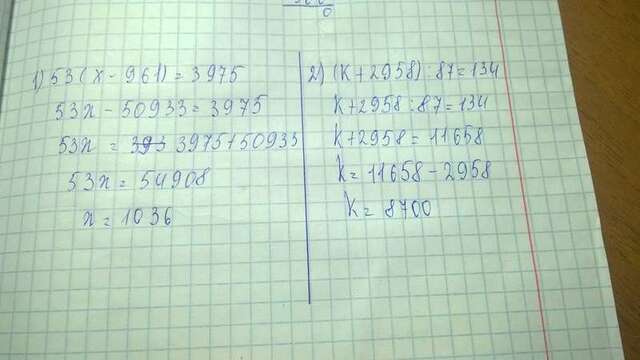 1) 53(x-961)=3975
53x-50933=3975
53x = 3975+50933
53x = 54908
x = 1036
2) (k+2958):87=134
k+2958:87=134
k+2958=11658
k=11658-2958
k=8700